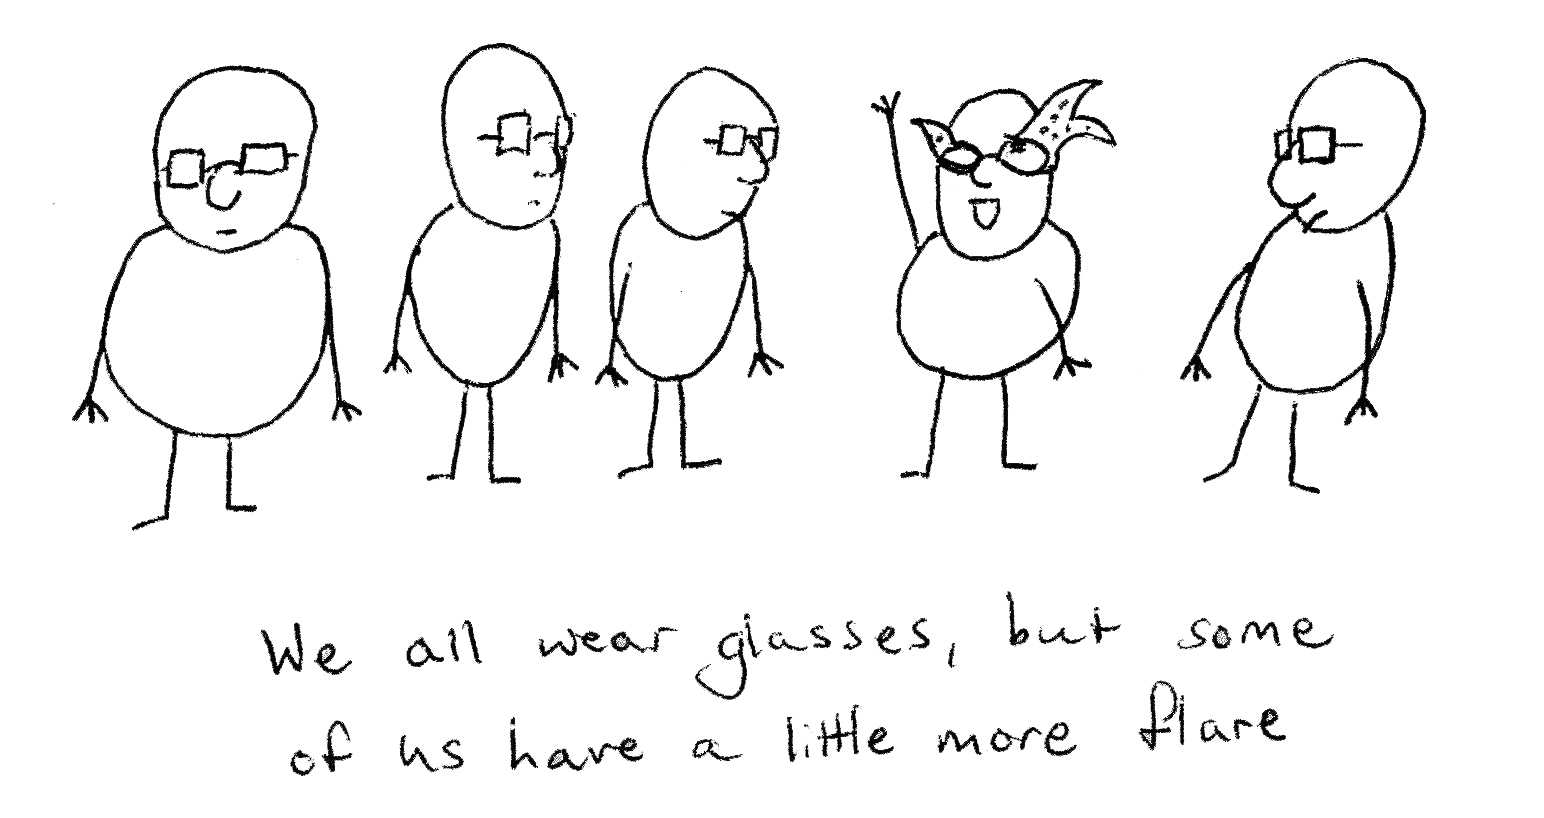 We all wear glasses, but some
of us have a little more flare